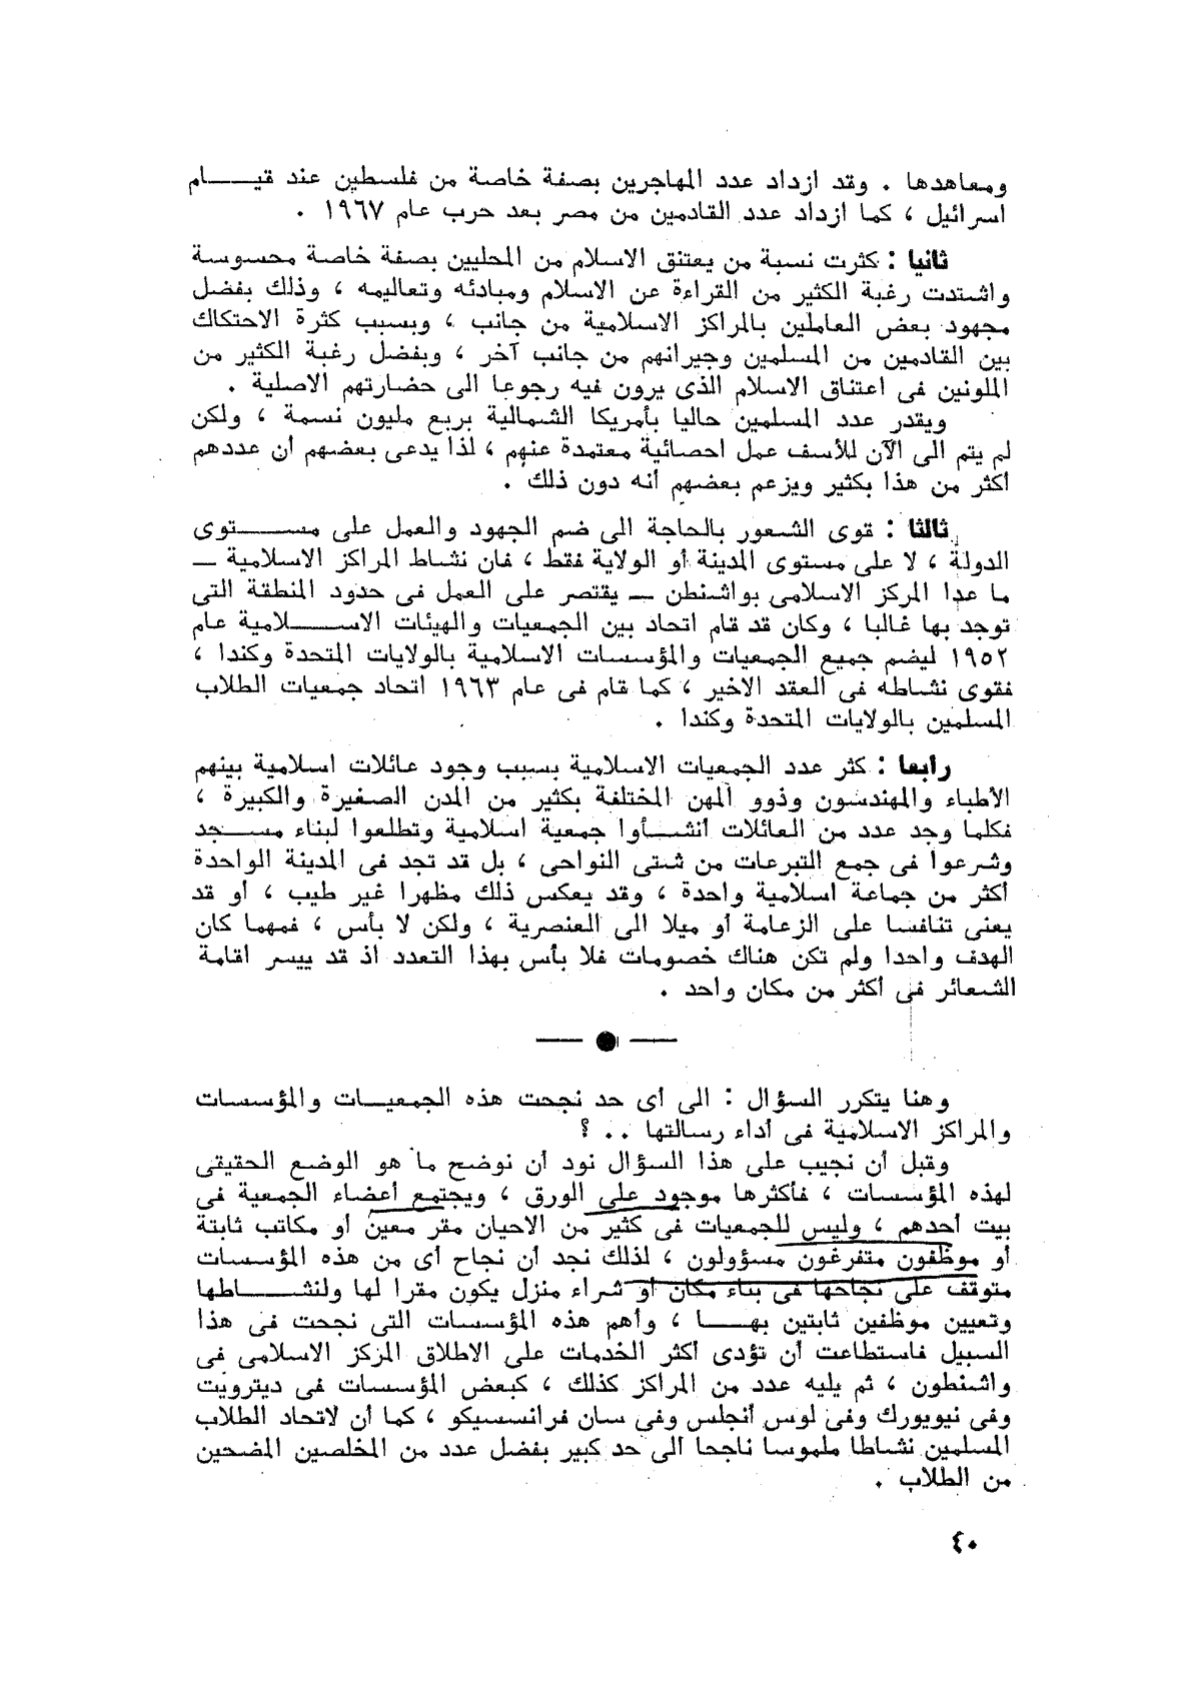 ومعاهدها . وقد ازداد عدد المهاجرين بصفة خاصة من فلسطين عند قيـــام
اسرائيل ، كما ازداد عدد القادمين من مصر بعد حرب عام ١٩٦٧ .
ثانيا : كثرت نسبة من يعتنق الاسلام من المحليين بصفة خاصة محسوسة
واشتدت رغبة الكثير من القراءة عن الاسلام ومبادئه وتعاليمه ، وذلك بفضل
مجهود بعض العاملين بالمراكز الاسلامية من جانب ، وبسبب كثرة الاحتكاك
بين القادمين من المسلمين وجيرانهم من جانب آخر ، وبفضل رغبة الكثير من
الملونين فى اعتناق الاسلام الذى يرون فيه رجوعا الى حضارتهم الاصلية .
ويقدر عدد المسلمين حاليا بأمريكا الشمالية بربع مليون نسمة ، ولكن
لم يتم الى الآن للأسف عمل احصائية معتمدة عنهم ، لذا يدعى بعضهم أن عددهم
أكثر من هذا بكثير ويزعم بعضهم أنه دون ذلك .
ثالثا : قوى الشعور بالحاجة الى ضم الجهود والعمل على مســـتوى
الدولة ، لا على مستوى المدينة أو الولاية فقط ، فان نشاط المراكز الاسلامية ــ
ما عدا المركز الاسلامى بواشنطن ــ يقتصر على العمل فى حدود المنطقة التى
توجد بها غالبا ، وكان قد قام اتحاد بين الجمعيات والهيئات الاســـلامية عام
١٩٥٢ ليضم جميع الجمعيات والمؤسسات الاسلامية بالولايات المتحدة وكندا ،
فقوى نشاطه فى العقد الاخير ، كما قام فى عام ١٩٦٣ اتحاد جمعيات الطلاب
المسلمين بالولايات المتحدة وكندا .
رابعا : كثر عدد الجمعيات الاسلامية بسبب وجود عائلات اسلامية بينهم
الأطباء والمهندسون وذوو المهن المختلفة بكثير من المدن الصغيرة والكبيرة ،
فكلما وجد عدد من العائلات أنشــأوا جمعية اسلامية وتطلعوا لبناء مســجد
وشرعوا فى جمع التبرعات من شتى النواحى ، بل قد تجد فى المدينة الواحدة
أكثر من جماعة اسلامية واحدة ، وقد يعكس ذلك مظهرا غير طيب ، أو قد
يعنى تنافسا على الزعامة أو ميلا الى العنصرية ، ولكن لا بأس ، فمهما كان
الهدف واحدا ولم تكن هناك خصومات فلا بأس بهذا التعدد اذ قد ييسر اقامة
الشعائر فى أكثر من مكان واحد .
وهنا يتكرر السؤال : الى أى حد نجحت هذه الجمعيــات والمؤسسات
والمراكز الاسلامية فى أداء رسالتها . . ؟
وقبل أن نجيب على هذا السؤال نود أن نوضح ما هو الوضع الحقيقى
لهذه المؤسسات ، فأكثرها موجود على الورق ، ويجتمع أعضاء الجمعية فى
بيت أحدهم ، وليس للجمعيات فى كثير من الاحيان مقر معين أو مكاتب ثابتة
أو موظفون متفرغون مسؤولون ، لذلك نجد أن نجاح أى من هذه المؤسسات
متوقف على نجاحها فى بناء مكان أو شراء منزل يكون مقرا لها ولنشـــاطها
وتعيين موظفين ثابتين بهـــا ، وأهم هذه المؤسسات التى نجحت فى هذا
السبيل فاستطاعت أن تؤدى أكثر الخدمات على الاطلاق المركز الاسلامى فى
واشنطون ، ثم يليه عدد من المراكز كذلك ، كبعض المؤسسات فى ديترويت
وفى نيويورك وفى لوس أنجلس وفى سان فرانسسيكو ، كما أن لاتحاد الطلاب
المسلمين نشاطا ملموسا ناجحا الى حد كبير بفضل عدد من المخلصين المضحين
من الطلاب .
٤٠